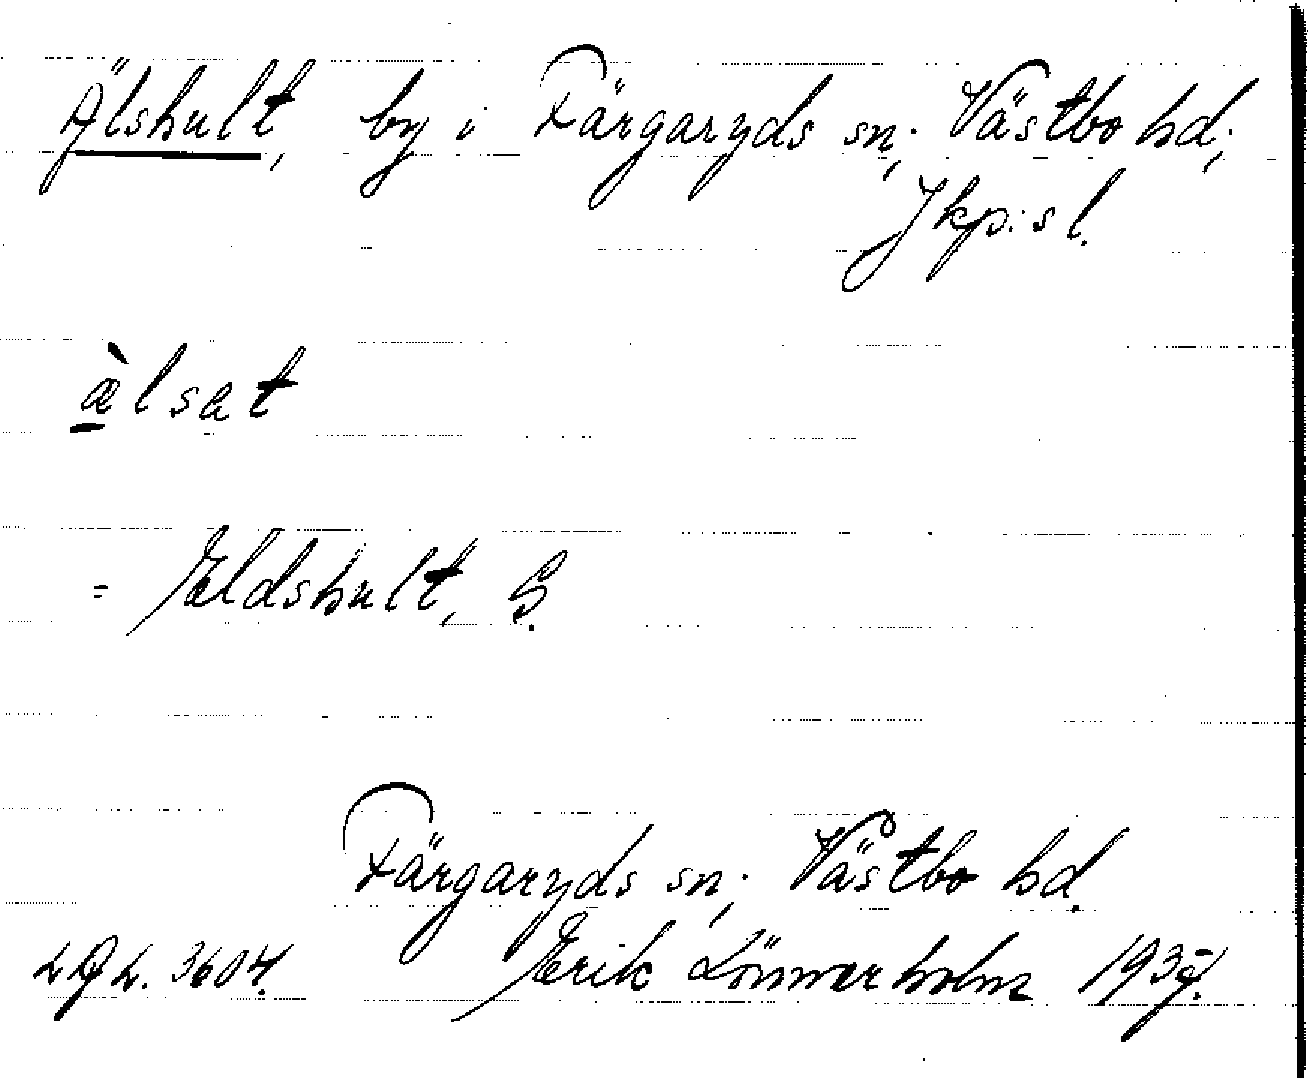 Älshult, by i Färgaryds sn; Västbo hd;
Jkp:s l.
æ̀lsat
= Eldshult, G.
Färgaryds sn; Västbo hd.
LAL. 3604. Erik Lönnerholm 1937.